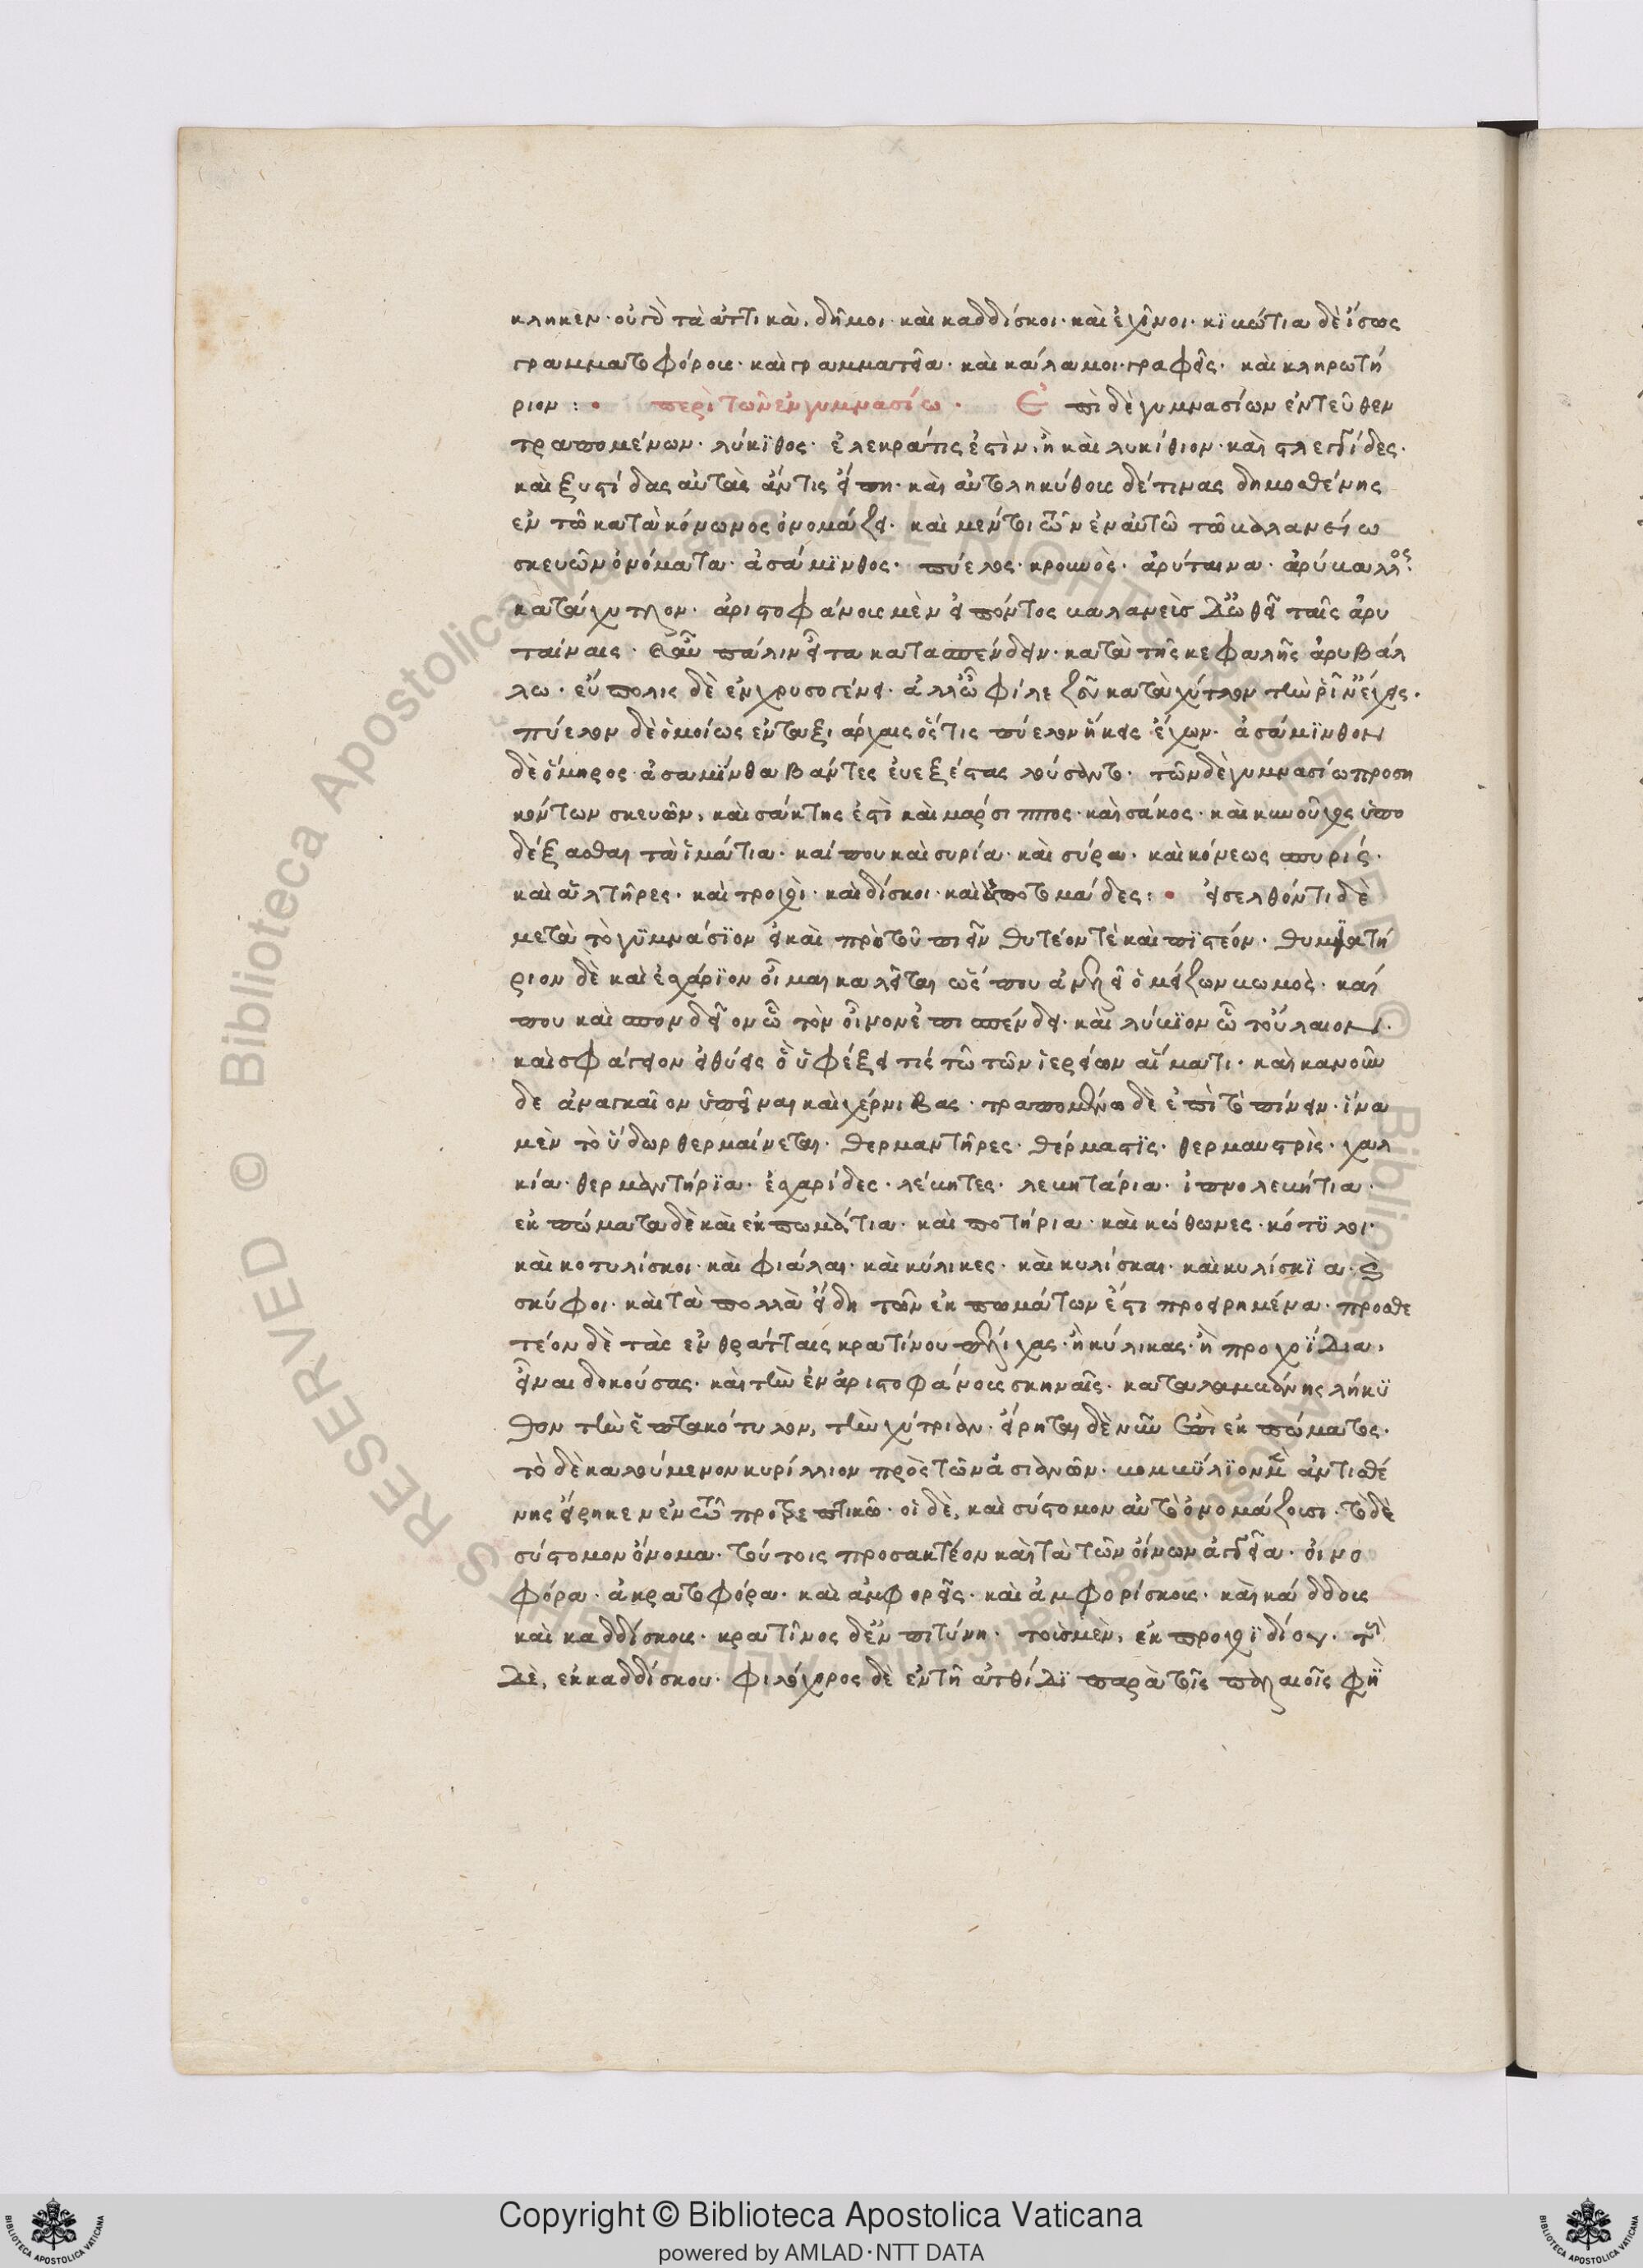 κληκεν· οὕτω τὰ ἀττικὰ, δῆμοι· καὶ καδδίσκοι· καὶ ἐχῖνοι· κϊβώτια δὲ ἴσως
γραμματοφόρους· καὶ γραμματεῖα· καὶ κάλαμοι· γραφεῖς· καὶ κληρωτή
ριον :· περὶ τῶν ἐν γυμνασίω· Ἐπὶ δὲ γυμνασίων ἐντεῦθεν
τραπομένων· λύκϊθος· ἐστὶν, ἢ καὶ λυκίθιον· καὶ στλεγγίδες·
καὶ ξυστίδας αὐτὰς ἄν τις εἴποι· καὶ αὐτοληκύθους δέ τινας δημοσθένης
ἐν τῶ κατὰ κόνωνος ὀνομάζει· καὶ μέντοι τῶν ἐν αὐτῶ τῶ βαλανείω
σκευῶν ὀνόματα· ἀσάμϊνθος· πύελος· κρουνὸς· ἀρύταινα· ἀρύβαλλος·
κατάχυτλον· ἀριστοφάνους μὲν εἰπόντος βαλανεὺς ὠθεῖ ταῖς ἀρυ
ταίναις· πάλιν εἶτα κατασπένδειν· κατὰ τῆς κεφαλῆς ἀρυβάλ
λω· εὔπολις δὲ ἐν χρυσογένει· φίλε ζεῦ κατάχυτλον τὴν ῥῖν᾽ ἔχεις·
πύελον δὲ ὁμοίως ἐν ταξιάρχαις ὅστις πύελον ἥκεις ἔχων· ἀσάμϊνθον
δὲ ὅμηρος ἀσαμΐνθα βάντες ἐυξέστας λούσαντο· τῶν δὲ γυμνασίω προση
κόντων σκευῶν, καὶ σάκτης ἐστὶ καὶ μάρσιππος· καὶ σάκος· καὶ κινοῦχος ὑπο
δέξασθαι τὰ ἱμάτια· καί που καὶ συρία· καὶ σύρα· καὶ κόνεως σπυρίς·
καὶ ἁλτῆρες· καὶ τροχοὶ· καὶ δίσκοι· καὶ ἀποτομάδες :· εἰσελθόντι δὲ
μετὰ τὸ γϋμνάσϊον εἰ καὶ πρὸ τοῦ πιεῖν θυτέον τὲ καὶ πϊστέον· θυμϊατή
ριον δὲ καὶ ἐσχάρϊον οἶμαι καλεῖται ὡς εἴ που ἀνείη ὁ μείζων βωμὸς· καί
που καὶ σπονδεῖον ὧ τὸν οἶνον ἐπισπένδει· καὶ λύκϊον ὧ τοὔλαιον·
καὶ σφάγιον εἰ θύεις ὃ ὑφέξει τίς τῶ τῶν ἱερείων αἵματι· καὶ κανοῦν
δε ἀναγκαῖον ὑπεῖναι καὶ χέρνιβας· τραπομένω δὲ ἐπὶ τὸ πίνειν· ἵνα
μὲν τὸ ὕδωρ θερμαίνεται· θερμαντῆρες· θέρμαστϊς· θερμαυστρὶς· χαλ
κία· θερμαντήρϊα· ἐσχαρίδες· λέβητες· λεβητάρια· ἰπνολεβήτια·
ἐκπώματα δὲ καὶ ἐκπωμάτια· καὶ ποτήρια· καὶ κώθωνες· κότϋλοι·
καὶ κοτυλίσκοι· καὶ φιάλαι· καὶ κύλικες· καὶ κυλίσκαι· καὶ κυλίσκϊα· καὶ
σκύφοι· καὶ τὰ πολλὰ εἴδη τῶν ἐκπωμάτων ἐστι προειρημένα· προσθε
τέον δὲ τὰς ἐν θράτταις κρατίνου ἢ κύλικας· ἢ προχοΐδια,
εἶναι δοκούσας· καὶ τὴν ἐν ἀριστοφάνους σκηναῖς· καταλαμβανούσης λήκϋ
θον τὴν ἑπτακότυλον, τὴν χύτριαν· εἴρηται δὲ νῦν ἐπὶ ἐκπώματος·
τὸ δὲ καλούμενον κυρίλλιον πρὸς τῶν ἀσιανῶν· βομβϋλϊὸν μὲν ἀντισθέ
νης εἴρηκεν ἐν τῶ προτρεπτικῶ· οἱ δὲ, καὶ σύστομον αὐτὸ ὀνομάζουσι· τὸ δὲ
σύστομον ὄνομα· τούτοις προσακτέον καὶ τὰ τῶν οἴνων ἀγγεῖα· οἰνο
φόρα· ἀκρατοφόρα· καὶ ἀμφορεῖς· καὶ ἀμφορίσκους· καὶ κάδδους
καὶ καδδίσκους· κρατῖνος δ᾽ ἐν πυτίνη· τοῖς μὲν, ἐκ προχοϊδίου· τοῖς
δὲ, ἐκ καδδίσκου· φιλόχορος δὲ ἐν τῆ ἀτθίδϊ παρὰ τοῖς παλαιοῖς φησὶ
Copyright © Biblioteca Apostolica Vaticana
powered by AMLAD·NTT DATA